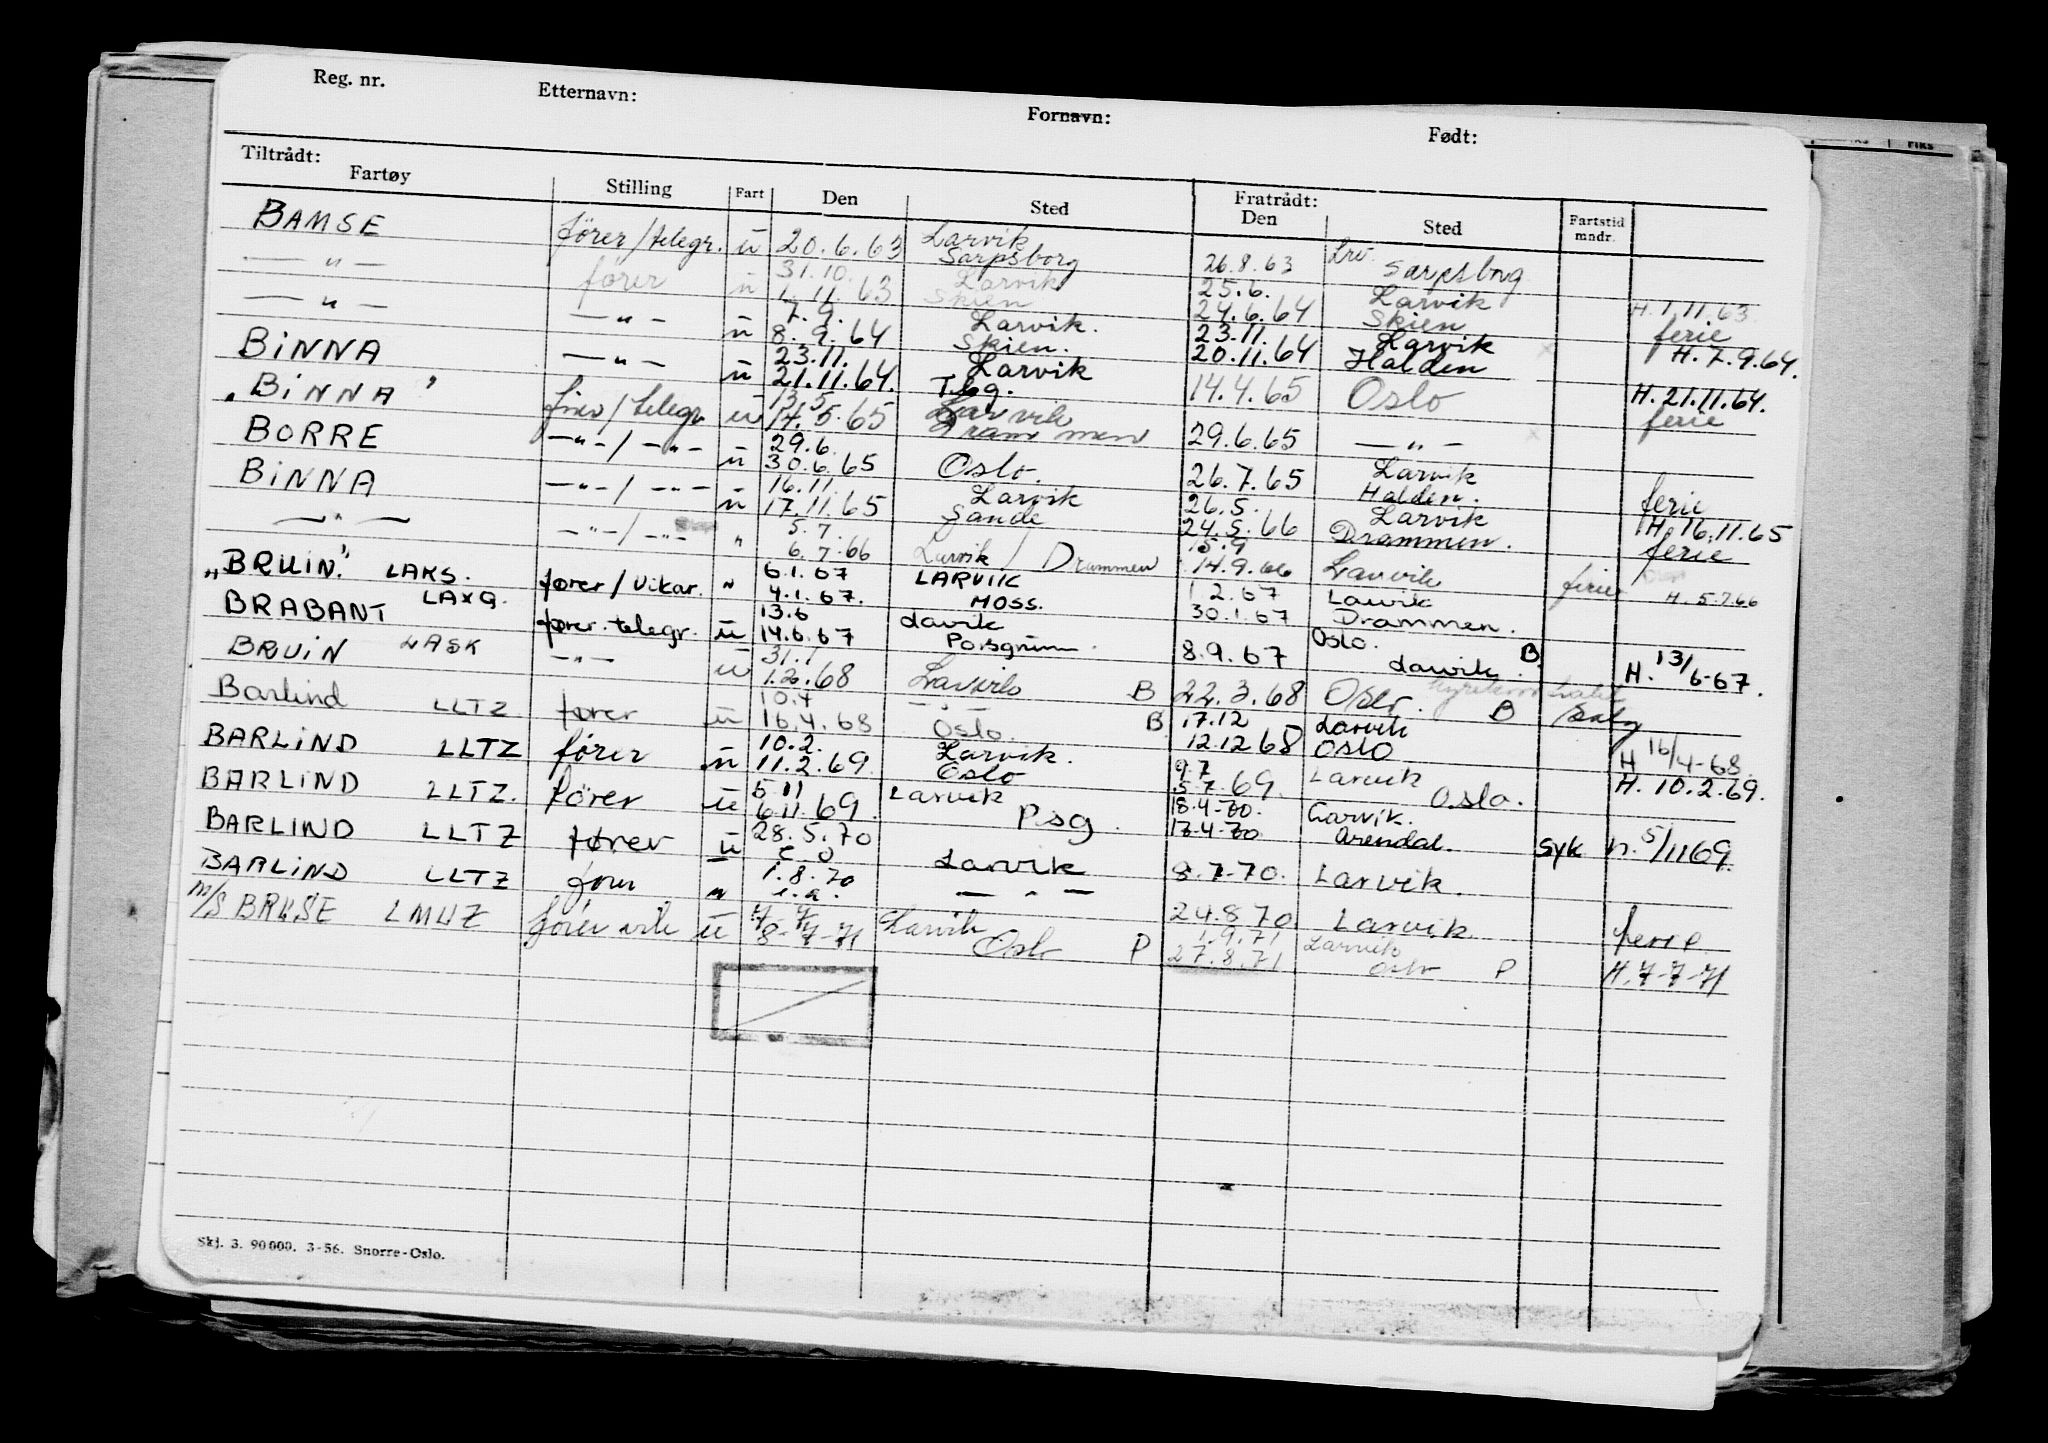 Reg. nr. Etternavn: Fornavn: Født:
Tiltrådt: Fratrådt:
Fartøy Stilling Fart Den Sted Den Sted Fartstid mndr.
BAMSE fører/telegr. u 20.6.63 Larvik Sarpsborg 26.8.63 Lrv. Sarpsborg
— " — fører u 31.10. 1.11.63 Larvik Skien 25.6. 24.6.64 Larvik Skien H. 1.11.63. ferie
— " — — " — u 7.9. 8.9.64 Larvik. Skien. 23.11. 20.11.64 Larvik Halden H. 7.9.64.
BINNA — " — u 23.11. 21.11.64. Larvik Tbg. 14.4.65 Oslo H. 21.11.64. ferie
"BINNA" fører/telegr u 13.5 14.5.65 Larvik Drammen 29.6.65 — " —
BORRE — " — / — " — u 29.6. 30.6.65 Oslo. 26.7.65 Larvik Halden. ferie
BINNA — " — / — " — u 16.11. 17.11.65 Larvik Sande 26.5. 24.5.66 Larvik Drammen. H. 16.11.65 ferie
— " — — " — / — " — " 5.7. 6.7.66 Larvik / Drammen 15.9 14.9.66 Larvik ferie H. 5.7.66
"BRUIN" LAKS. fører/vikar. " 6.1.67 4.1.67. LARVIK MOSS. 1.2.67 30.1.67 Larvik Drammen.
BRABANT LAXQ. fører.telegr. u 13.6 14.6.67 Larvik Porsgrunn. 8.9.67 Oslo. B Larvik. H. 13/6-67.
BRUIN LASK — " — u 31.1 1.2.68 Larvik B 22.3.68 Oslo. B salg
Barlind LLTZ fører u 10.4 16.4.68 — " — Oslo. B 17.12 12.12 68 Larvik OSLO H 16/4-68.
BARLIND LLTZ fører u 10.2. 11.2.69. Larvik. Oslo 9.7 5.7.69. Larvik Oslo. H. 10.2.69.
BARLIND LLTZ. fører u 5 11 6.11.69. Larvik Psg. 18.4-70. 17.4-70 Larvik. Arendal. syk H. 5/11 69.
BARLIND LLTZ fører u 28.5.70 Larvik 8.7-70. Larvik.
BARLIND LLTZ fører " 1.8.70 — " — 24.8.70 Larvik ferie
M/S BRUSE LMUZ fører vik u 7-7 8-7-71 Larvik Oslo P 1.9.71 27.8.71 Larvik Oslo P H. 7-7-71
Skj. 3. 90000. 3-56. Snorre-Oslo.